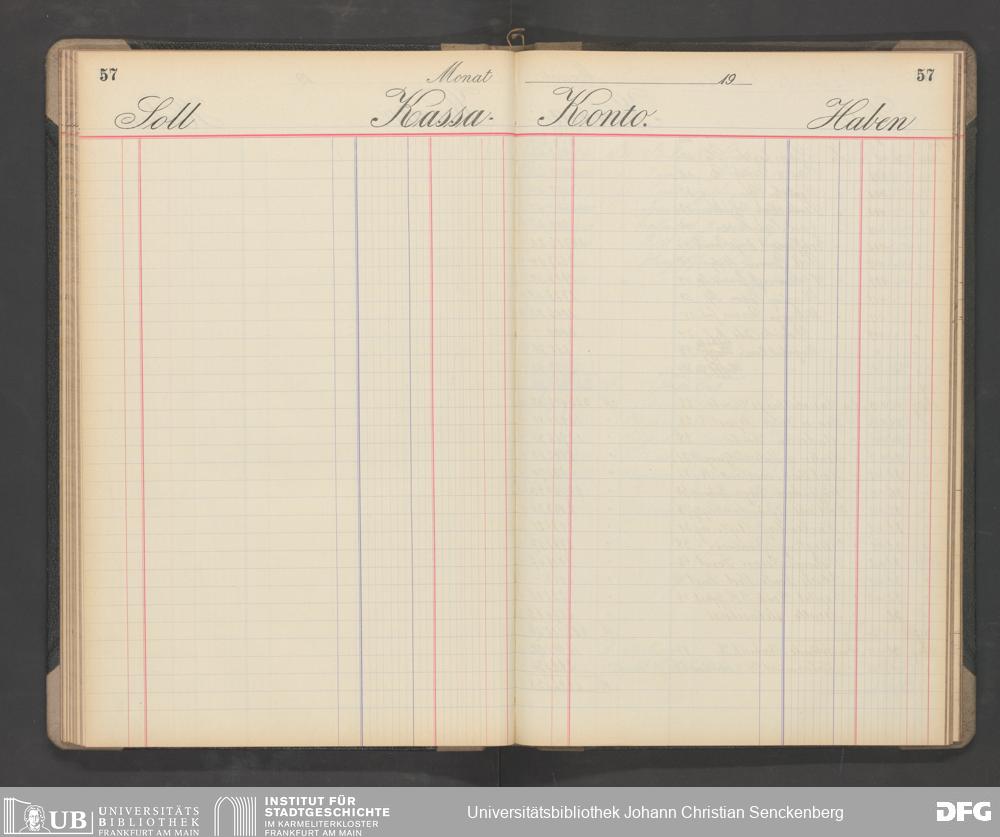 57 Monat 19 57
Soll Kassa- Konto. Haben
UB UNIVERSITÄTS
BIBLIOTHEK
FRANKFURT AM MAIN
INSTITUT FÜR
STADTGESCHICHTE
IM KARMELITERKLOSTER
FRANKFURT AM MAIN
Universitätsbibliothek Johann Christian Senckenberg
DFG